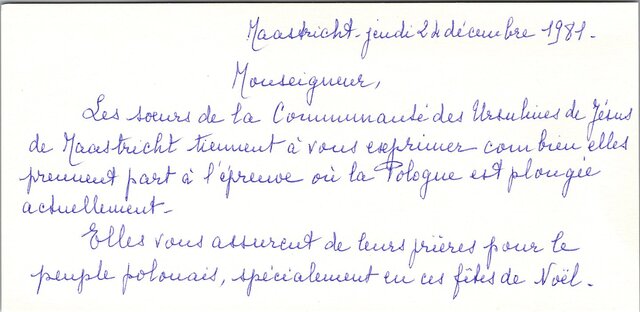 Maastricht - jeudi 24 décembre 1981.
Monseigneur,
Les sœurs de la Communauté des Ursulines de Jésus
de Maastricht tiennent à vous exprimer combien elles
prennent part à l'épreuve où la Pologne est plongée
actuellement -
Elles vous assurent de leurs prières pour le
peuple polonais, spécialement en ces fêtes de Noël.